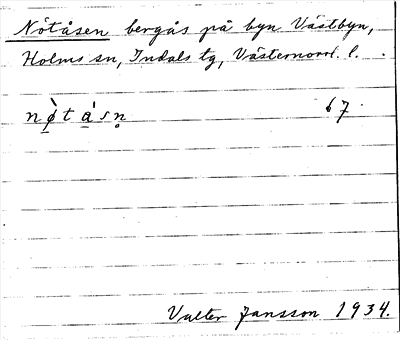 Nötåsen bergås på byn Västbyn,
Holms sn, Indals tg, Västernorrl. l.
nø̠̀tá̠sn̥ 67
Valter Jansson 1934.